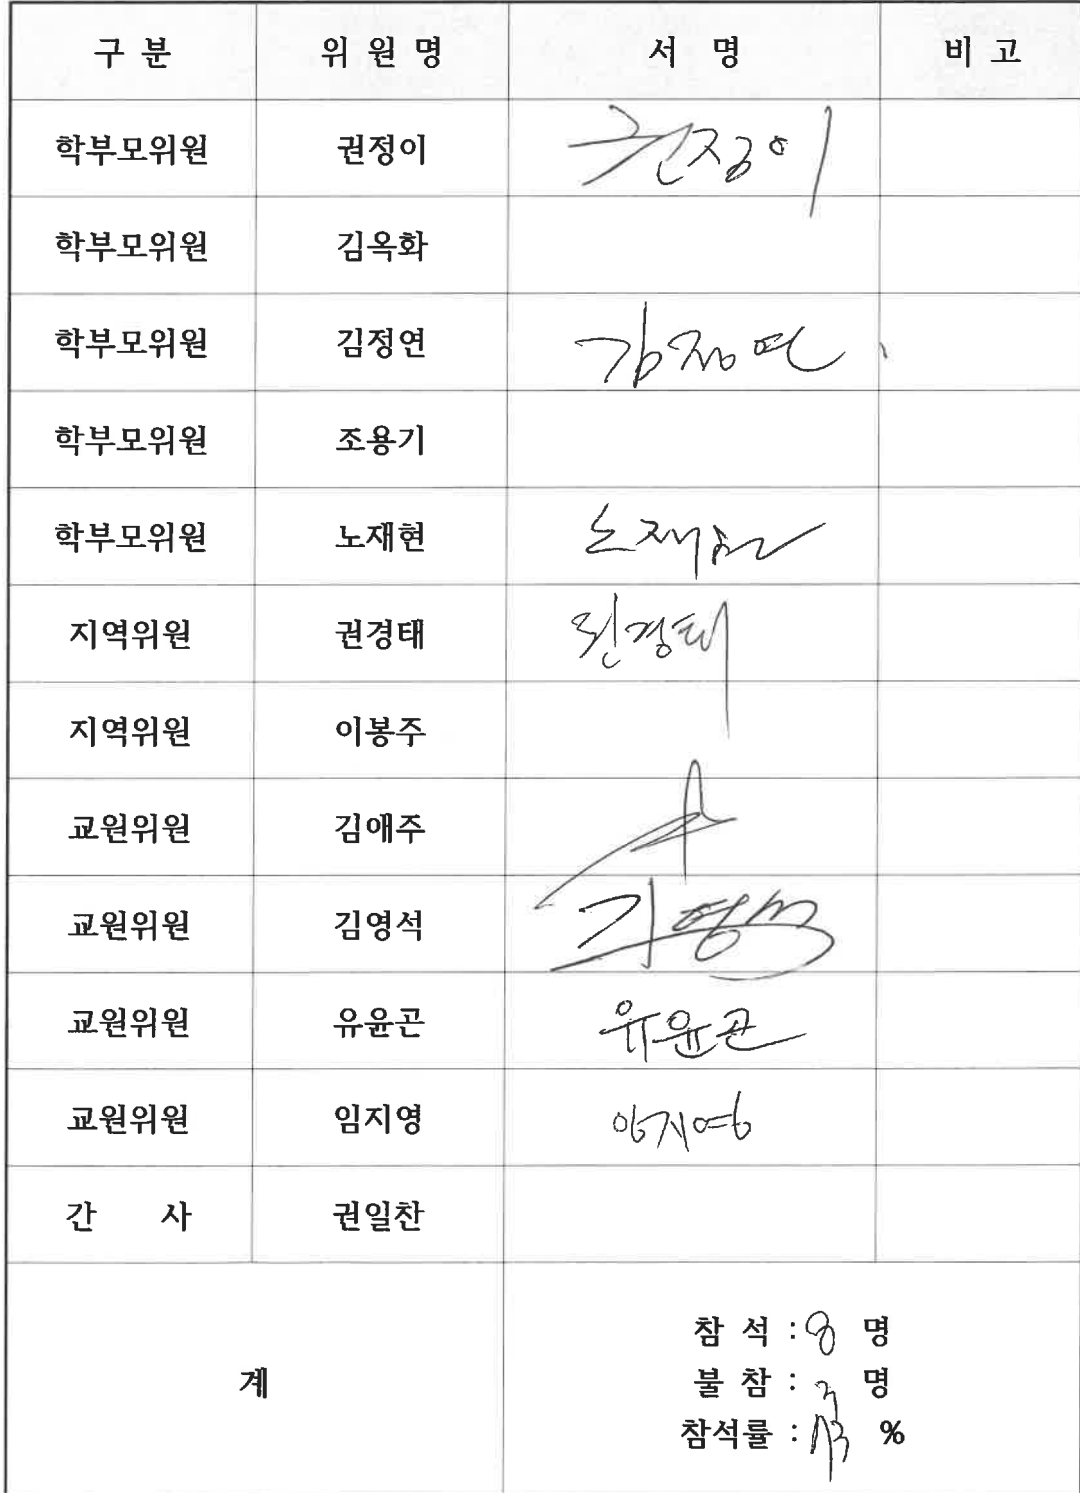 구 분 위 원 명 서 명 비 고
학부모위원 권정이 권정이
학부모위원 김옥화
학부모위원 김정연 김정연
학부모위원 조용기
학부모위원 노재현 노재현
지역위원 권경태 권경태
지역위원 이봉주
교원위원 김애주
교원위원 김영석 김영석
교원위원 유윤곤 유윤곤
교원위원 임지영 임지영
간 사 권일찬
계
참 석 : 8 명
불 참 : 3 명
참석률 : 73 %